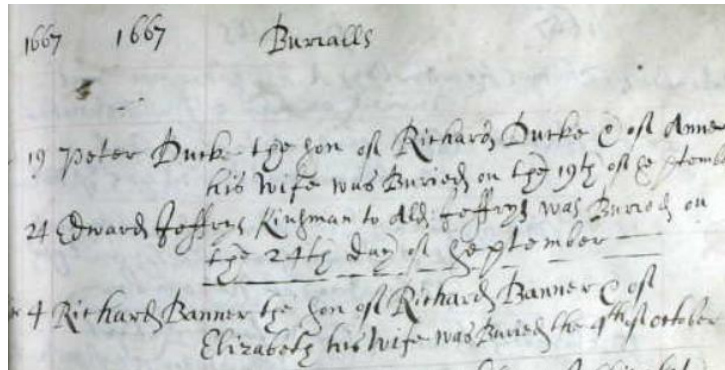 1667 1667 Burialls
19 Peter Ducke the son of Richard Ducke & of Anne
his Wife was Buried on the 19th of September
24 Edward Jeffrys Kinsman to Ald: Jeffrys was Buried on
the 24th day of September
4 Richard Banner the son of Richard Banner & of
Elizabeth his Wife was Buried the 4th of October